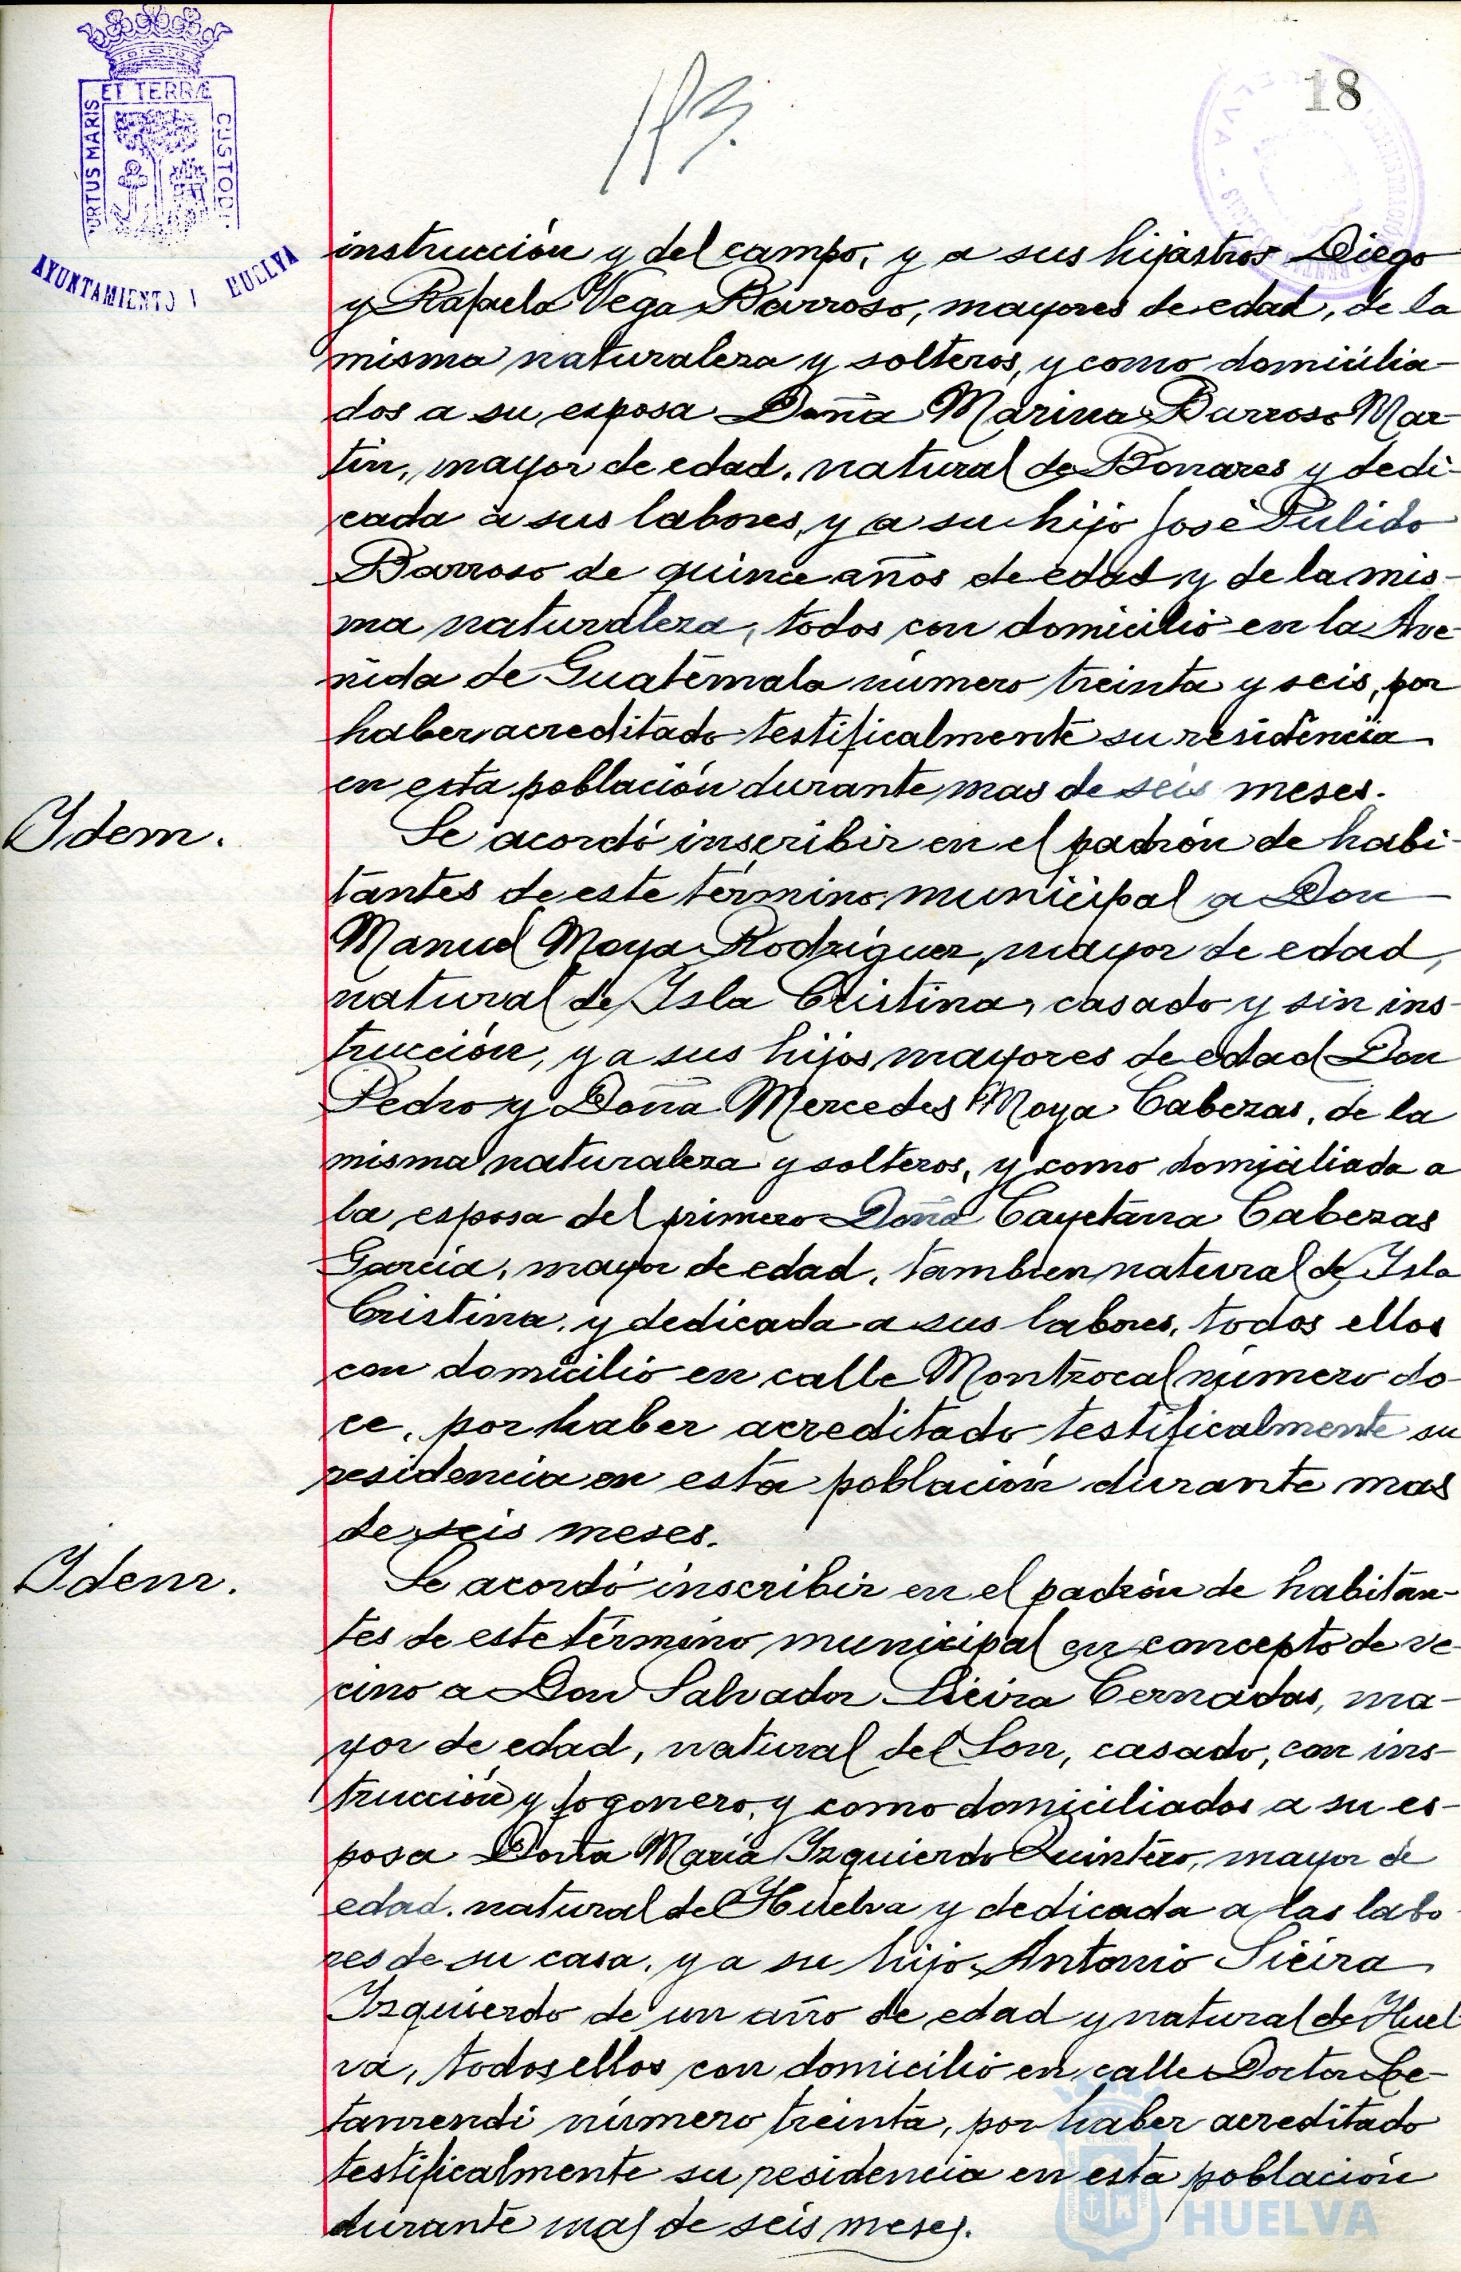 ET TERRÆ
PORTUS MARIS
CUSTODI
AYUNTAMIENTO
HUELVA
18
instrucción y del campo, y a sus hijastros Diego
y Rafaela Vega Barroso, mayores de edad, de la
misma naturaleza y solteros, y como domicilia-
dos a su esposa Doña Marina Barroso Mar-
tin, mayor de edad, natural de Bonares y dedi-
cada a sus labores, y a su hijo José Pulido
Barroso de quince años de edad y de la mis-
ma naturaleza, todos con domicilio en la Ave-
nida de Guatemala número treinta y seis, por
haber acreditado testificalmente su residencia
en esta población durante mas de seis meses.
Idem.
Se acordó inscribir en el padrón de habi-
tantes de este término municipal a Don
Manuel Moya Rodriguez, mayor de edad,
natural de Isla Cristina, casado y sin ins-
trucción, y a sus hijos mayores de edad Don
Pedro y Doña Mercedes Moya Cabezas, de la
misma naturaleza y solteros, y como domiciliada a
la esposa del primero Doña Cayetana Cabezas
Garcia, mayor de edad, tambien natural de Isla
Cristina, y dedicada a sus labores, todos ellos
con domicilio en calle Montrocal número do-
ce, por haber acreditado testificalmente su
residencia en esta población durante mas
de seis meses.
Idem.
Se acordó inscribir en el padrón de habitan-
tes de este término municipal en concepto de ve-
cino a Don Salvador Sieira Cernadas, ma-
yor de edad, natural del Son, casado, con ins-
trucción y fogonero, y como domiciliados a su es-
posa Doña María Izquierdo Quintero, mayor de
edad, natural de Huelva y dedicada a las labo-
res de su casa, y a su hijo Antonio Sieira
Izquierdo de un año de edad y natural de Huel-
va, todos ellos con domicilio en calle Doctor Le-
tamendi número treinta, por haber acreditado
testificalmente su residencia en esta población
durante mas de seis meses.
HUELVA